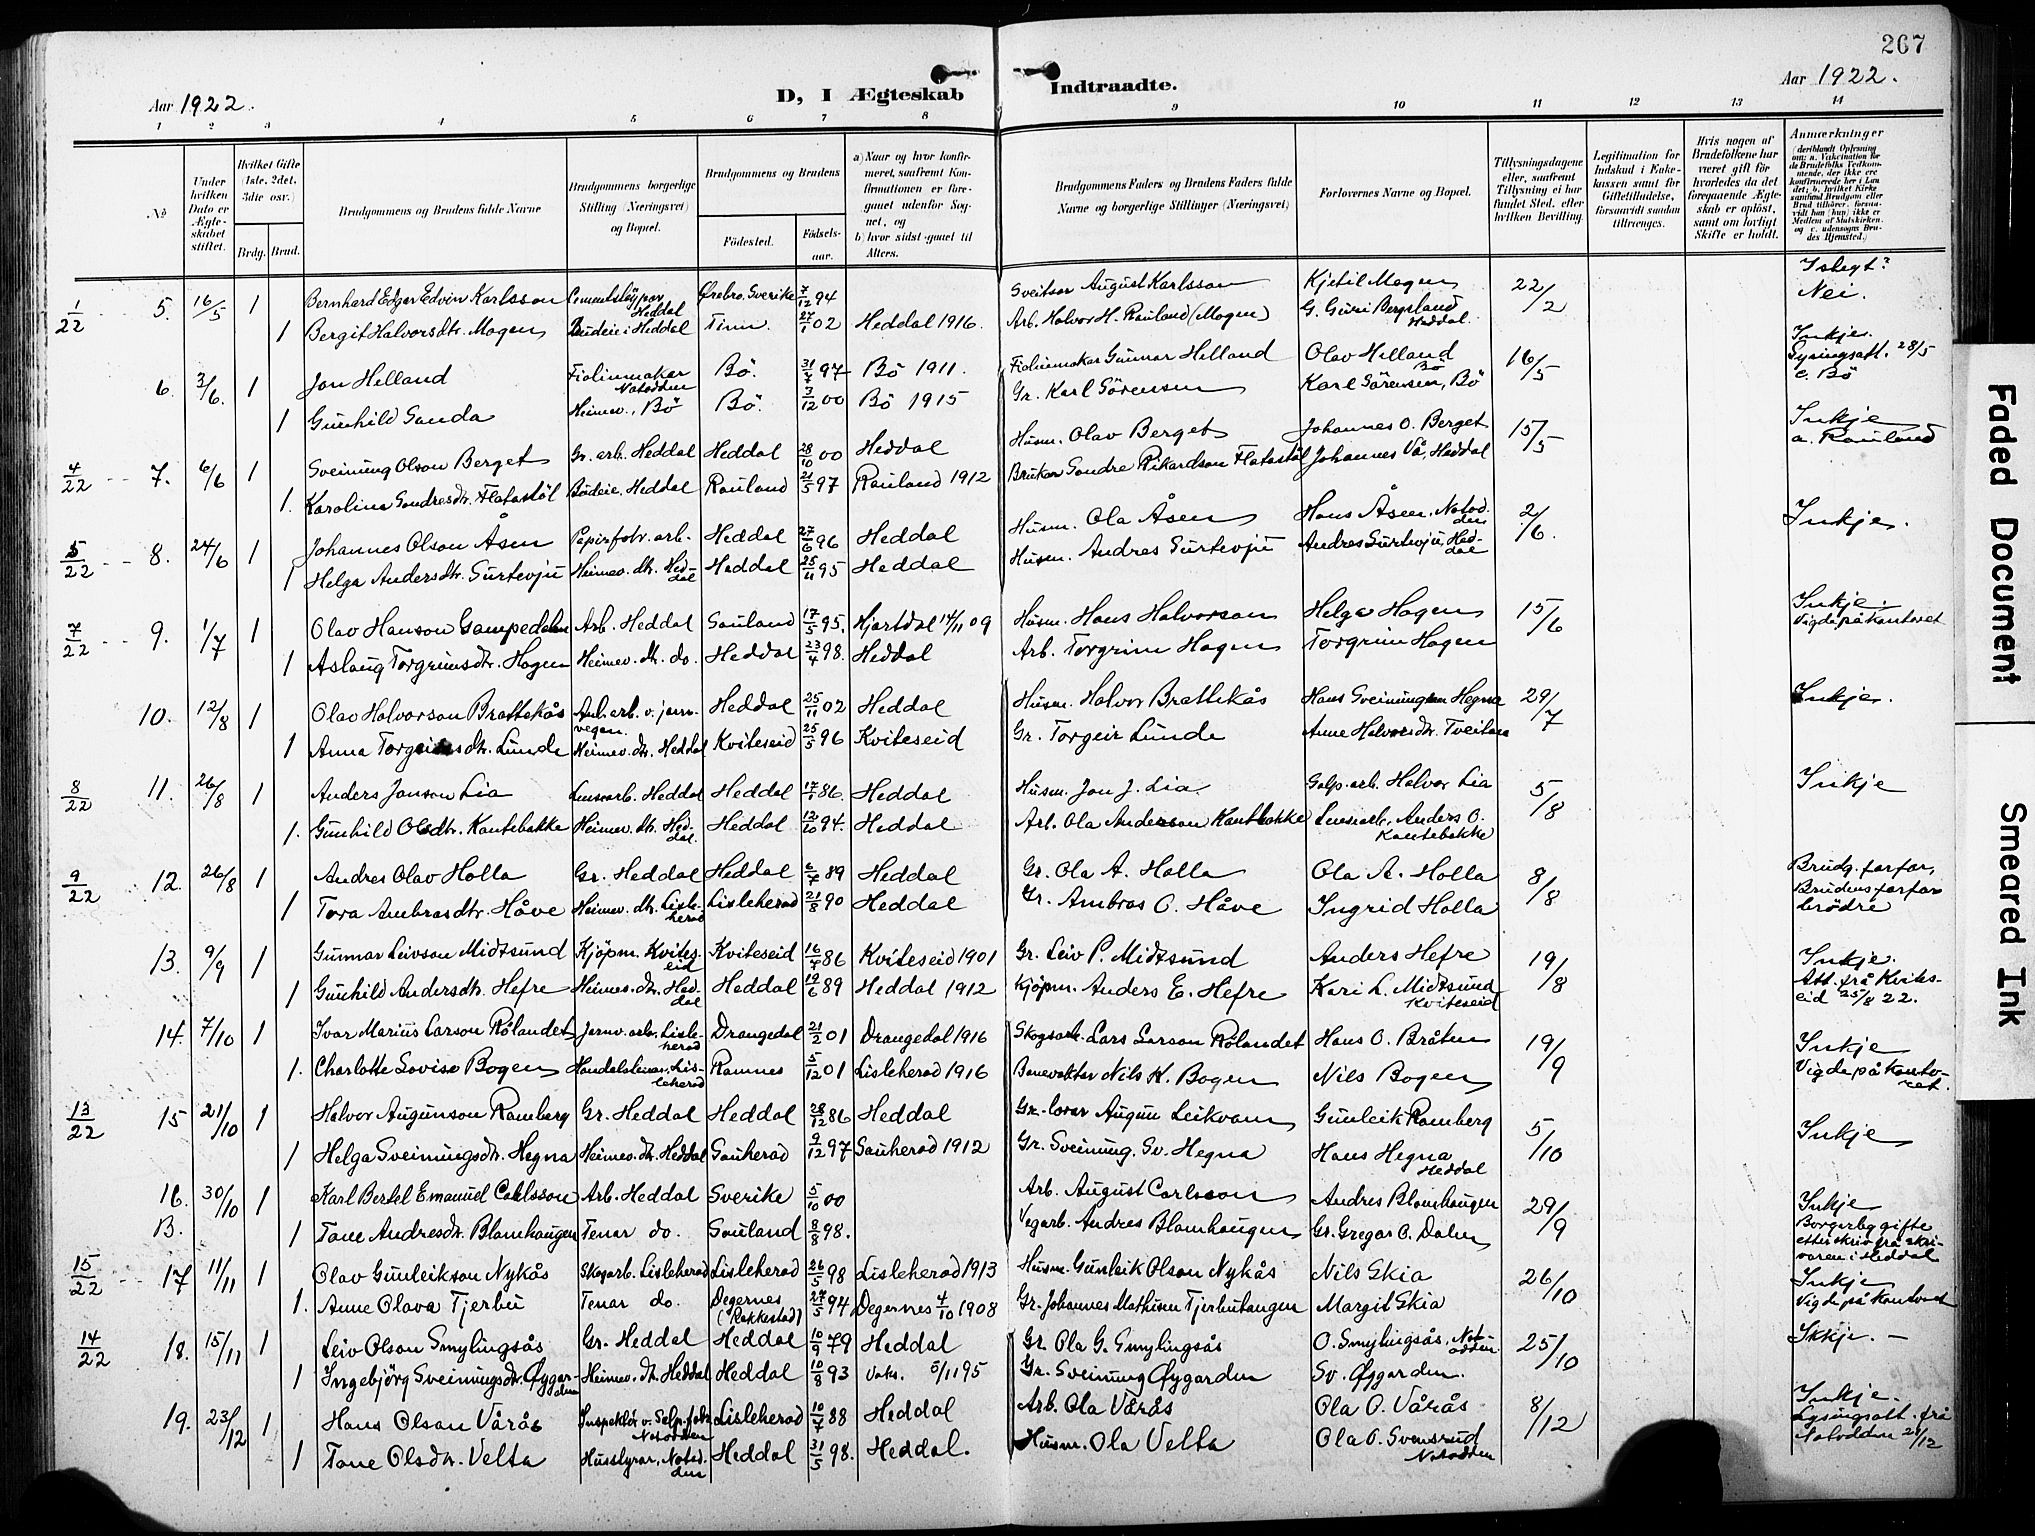 267
Aar 1922.
D, I Ægteskab Indtraadte.
Aar 1922.
1 2 3 4 5 6 7 8 9 10 11 12 13 14
No
Under hvilken Dato er Ægteskabet stiftet.
Hvilket Gifte (1ste, 2det, 3die osv.)
Brdg. Brud.
Brudgommens og Brudens fulde Navne
Brudgommens borgerlige Stilling (Næringsvei) og Bopæl.
Brudgommens og Brudens
Födested.
Födselsaar.
a) Naar og hvor konfirmeret, saafremt Konfirmationen er foregaaet udenfor Sognet, og
b) hvor sidst gaaet til Alters.
Brudgommens Faders og Brudens Faders fulde Navne og borgerlige Stillinger (Næringsvei)
Forlovernes Navne og Bopæl.
Tillysningsdagene eller, saafremt Tillysning ei har fundet Sted, efter hvilken Bevilling.
Legitimation for Indskud i Enkekassen samt for Giftetilladelse, forsaavidt saadan tiltrænges.
Hvis nogen af Brudefolkene har været gift för hvorledes da det foregaaende Ægteskab er oplöst, samt om lovligt Skifte er holdt.
Anmærkninger
(deriblandt Oplysning om: a. Vakcination for de Brudefolks Vedkommende, der ikke ere konfirmerede her i Landet; b. hvilket Kirkesamfund Brudgom eller Brud tilhörer, forsaavidt han (hun) ikke er Medlem af Statskirken, og c. udensogns Brudes Hjemsted.)
1/22 5. 16/5 1 Bernhard Edgar Edvin Karlsson Cementstøypar Heddal Ørebro, Sverike 7/12 94 Sveitsar August Karlsson Kjetil Mogen 22/2 I slegt? Nei.
1 Bergit Halvorsdtr. Mogen Budeie i Heddal Tinn 27/1 02 Heddal 1916. Arb. Halvor H. Rauland (Mogen) G. Guri Bergsland Heddal
6. 3/6. 1 Jon Helland Fiolinmakar Notodden Bö. 31/7 97 Bö 1911. Fiolinmakar Gunnar Helland Olav Helland Bö 16/5 Inkje. Lysingsatt. 28/5 c. Bö
1 Gunhild Sanda Heimev., Bö Bö. 3/12 00 Bö 1915 Gr. Karl Sörensen Karl Sörensen, Bö
4/22 7. 6/6 1 Sveinung Olson Berget Gr. arb. Heddal Heddal 28/10 00 Heddal Husm. Olav Berget Johannes O. Berget 15/5 Inkje a. Rauland
1. Karolina Sondresdtr. Flatastöl Budeie, Heddal Rauland 21/5 97 Rauland 1912 Brukar Sondre Rikardson Flatastöl Johannes Vå, Heddal
5/22 8. 24/6 1 Johannes Olson Åsen Papirfabr. arb. Heddal 27/6 96 Heddal Husm. Ola Åsen Hans Åsen, Notodden 2/6. Inkje.
1 Helga Andersdtr. Surtevju Heimev. dtr. Heddal Heddal 25/11 95 Heddal Husm. Andres Surtevju Andres Surtevju, Heddal
7/22 9. 1/7 1 Olav Hanson Gampedalen Arb. Heddal Sauland 17/5 95. Hjartdal 14/11 09 Husm. Hans Halvorson Helge Hagen 15/6 Inkje. Vigde på kontoret
1 Aslaug Torgrimsdtr. Hagen Heimev. dtr. do. Heddal 23/4 98. Heddal Arb. Torgrim Hagen Torgrim Hagen
10. 12/8 1 Olav Halvorson Brattekås Anl. arb. v. jernvegen. Heddal 25/11 02 Heddal Husm. Halvor Brattekås Hans Sveinungson Hegna 29/7 Inkje.
1 Anna Torgeirsdtr. Lunde Heimev. dtr. Heddal Kviteseid 25/5 96 Kviteseid Gr. Torgeir Lunde Anne Halvorsdtr. Tveitane
8/22 11. 26/8 1 Anders Jonson Lia Lensearb. Heddal Heddal 17/1 86. Heddal Husm. Jon J. Lia. Salp. arb. Halvor Lia 5/8 Inkje
1. Gunhild Olsdtr. Kantebakke Heimev. dtr. Heddal. Heddal 12/10 94. Heddal Arb. Ola Anderson Kantbakke Lensearb. Anders O. Kantebakke
9/22 12. 26/8 1 Andres Olav Holla Gr. Heddal Heddal 6/7 89 Heddal Gr. Ola A. Holla Ola A. Holla 8/8 Brudg. farfar, Brudens farfar brödre
1 Tora Ambrosdtr. Håve Heimev. dtr. Lisleherad Lisleherad 21/8 90 Heddal Gr. Ambros O. Håve Ingrid Holla
13. 9/9 1 Gunnar Leivson Midtsund Kjöpm. Kviteseid Kviteseid 16/7 86 Kviteseid 1901 Gr. Leiv P. Midtsund Anders Hefre 19/8 Inkje. Att. frå Kviteseid 25/8 22.
1 Gunhild Andersdtr. Hefre Heimev. dtr. Heddal Heddal 19/6 89 Heddal 1912 Kjöpm. Anders E. Hefre Kari L. Midtsund Kviteseid
14. 7/10 1 Ivar Marius Larson Rölandet Jernv. arb. Lisleherad Drangedal 21/2 01 Drangedal 1916 Skogsarb. Lars Larson Rölandet Hans O. Bråten 19/9 Inkje Vigde på kontoret.
1. Charlotte Lovise Bogen Handelsleiar, Lisleherad Ramnes 5/12 01 Lisleherad 1916 Banevaktar Nils K. Bogen Nils Bogen
13/22 15 21/10 1 Halvor Augunson Ramberg Gr. Heddal Heddal 28/12 86 Heddal Gr. lærar Augun Leikvam Gunleik Ramberg 5/10 Inkje
1 Helga Sveinungsdtr. Hegna Heimev. dtr. Heddal Sauherad 9/12 97 Sauherad 1912 Gr. Sveinung Sv. Hegna Hans Hegna Heddal
16. B. 30/10 1 Karl Bertel Emanuel Carlsson Arb. Heddal Sverike 5/10 00 Arb. August Carlsson Andres Blomhaugen 29/9 Inkje Borgerleg gifte etter skriv frå skrivaren i Heddal
1 Tone Andresdtr. Blomhaugen Tenar do. Sauland 8/8 98. Vegarb. Andres Blomhaugen Gr. Gregar O. Dalen
15/22 17 11/11 1 Olav Gunleikson Nykås Skogarb. Lisleherad Lisleherad 26/5 98 Lisleherad 1913 Husm. Gunleik Olson Nykås Nils Skia 26/10 Inkje Vigde på kontoret
1. Anne Olava Tjerbu Tenar do. Degernes (Rakkestad) 27/5 94 Degernes 4/10 1908 Gr. Johannes Mathisen Tjerbutangen Margit Skia
14/22 18. 15/11 1 Leiv Olson Smylingsås Gr. Heddal Heddal 10/9 79 Heddal Gr. Ola G. Smylingsås O. Smylingsås, Notodden 25/10 Ikkje. –
1 Ingebjörg Sveinungsdtr. Øygarden Heimev. dtr. Heddal Heddal 10/8 93 Vaks. 5/11 95 Gr. Sveinung Øygarden Sv. Øygarden.
19. 23/12 1 Hans Olson Vårås Inspektör v. Salp. fabr. Notodden Lisleherad 10/7 88 Heddal Arb. Ola Vårås Ola O. Vårås 8/12 Inkje. Lysingsatt. frå Notodden 21/12
1 Tone Olsdtr. Velta Husstyrar, Notodden Heddal 31/5 98. Heddal. Husm. Ola Velta Ola O. Svensrud Notodden
Faded Document
Smeared Ink